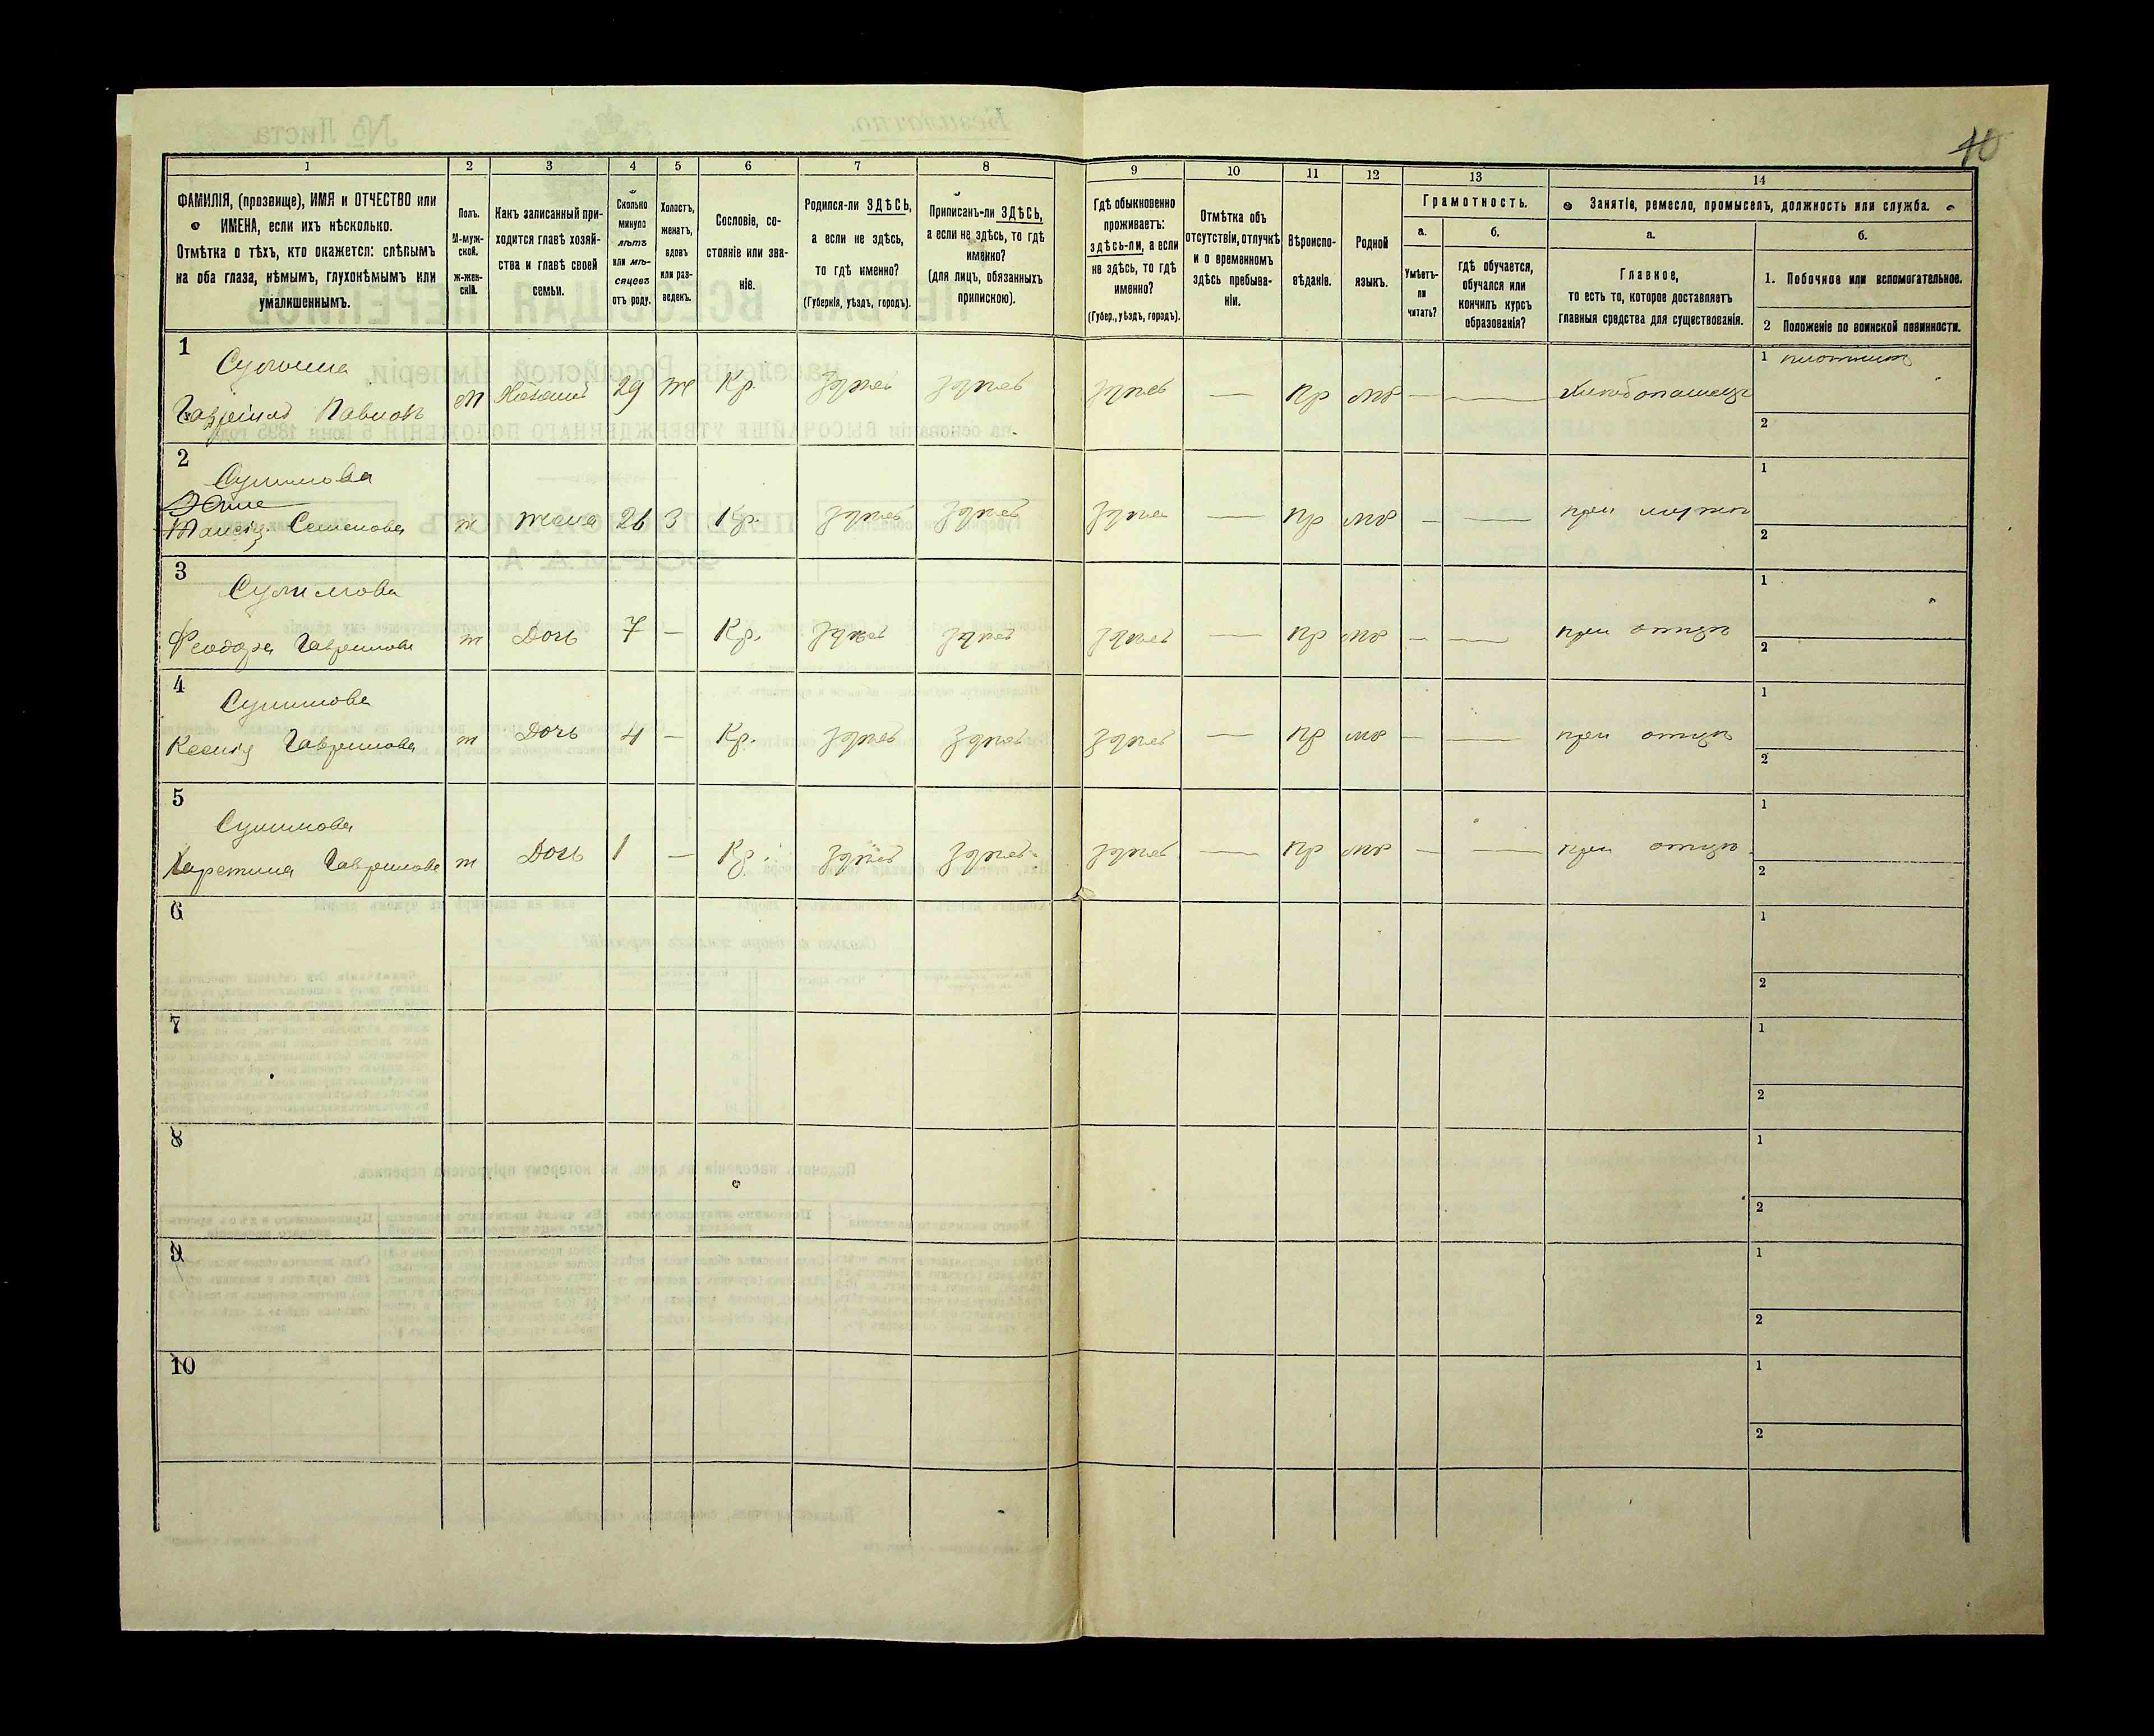 10
1
2
3
4
5
6
7
8
9
10
11
12
13
14
ФАМИЛІЯ, (прозвище), ИМЯ и ОТЧЕСТВО или
ИМЕНА, если ихъ нѣсколько.
Отмѣтка о тѣхъ, кто окажется: слѣпымъ
на оба глаза, нѣмымъ, глухонѣмымъ или
умалишеннымъ.
Полъ.
М-муж-
ской.
ж-жен-
скій.
Какъ записанный при-
ходится главѣ хозяй-
ства и главѣ своей
семьи.
Сколько
минуло
лѣтъ
или мѣ-
сяцевъ
отъ роду.
Холостъ,
женатъ,
вдовъ
или раз-
веденъ.
Сословіе, со-
стояніе или зва-
ніе.
Родился-ли ЗДѢСЬ,
а если не здѣсь,
то гдѣ именно?
(Губернія, уѣздъ, городъ).
Приписанъ-ли ЗДѢСЬ,
а если не здѣсь, то гдѣ
именно?
(для лицъ, обязанныхъ
припискою).
Гдѣ обыкновенно
проживаетъ:
здѣсь-ли, а если
не здѣсь, то гдѣ
именно?
(Губер., уѣздъ, городъ).
Отмѣтка объ
отсутствіи, отлучкѣ
и о временномъ
здѣсь пребыва-
ніи.
Вѣроиспо-
вѣданіе.
Родной
языкъ.
Грамотность.
а.
Умѣетъ-
ли
читать?
б.
гдѣ обучается,
обучался или
кончилъ курсъ
образованія?
Занятіе, ремесло, промыселъ, должность или служба.
а.
Главное,
то есть то, которое доставляетъ
главныя средства для существованія.
б.
1. Побочное или вспомогательное.
2 Положеніе по воинской повинности.
1
Гавріилъ Павловъ М Хозяинъ 29 ж Кр. здѣсь здѣсь здѣсь — Пр мр — — Хлѣбопашецъ
1 плотникъ
2
2
Сулимова
Семенова ж жена 26 З Кр. здѣсь здѣсь здѣсь — Пр мр — — при мужѣ
1
2
3
Сулимова
Феодора Гаврилова ж Дочь 7 — Кр. здѣсь здѣсь здѣсь — Пр мр — — при отцѣ
1
2
4
Сулимова
Ксенія Гаврилова ж Дочь 4 — Кр. здѣсь здѣсь здѣсь — Пр мр — — при отцѣ
1
2
5
Сулимова
Харетина Гаврилова ж Дочь 1 — Кр. здѣсь здѣсь здѣсь — Пр мр — — при отцѣ
1
2
6
1
2
7
1
2
8
1
2
9
1
2
10
1
2